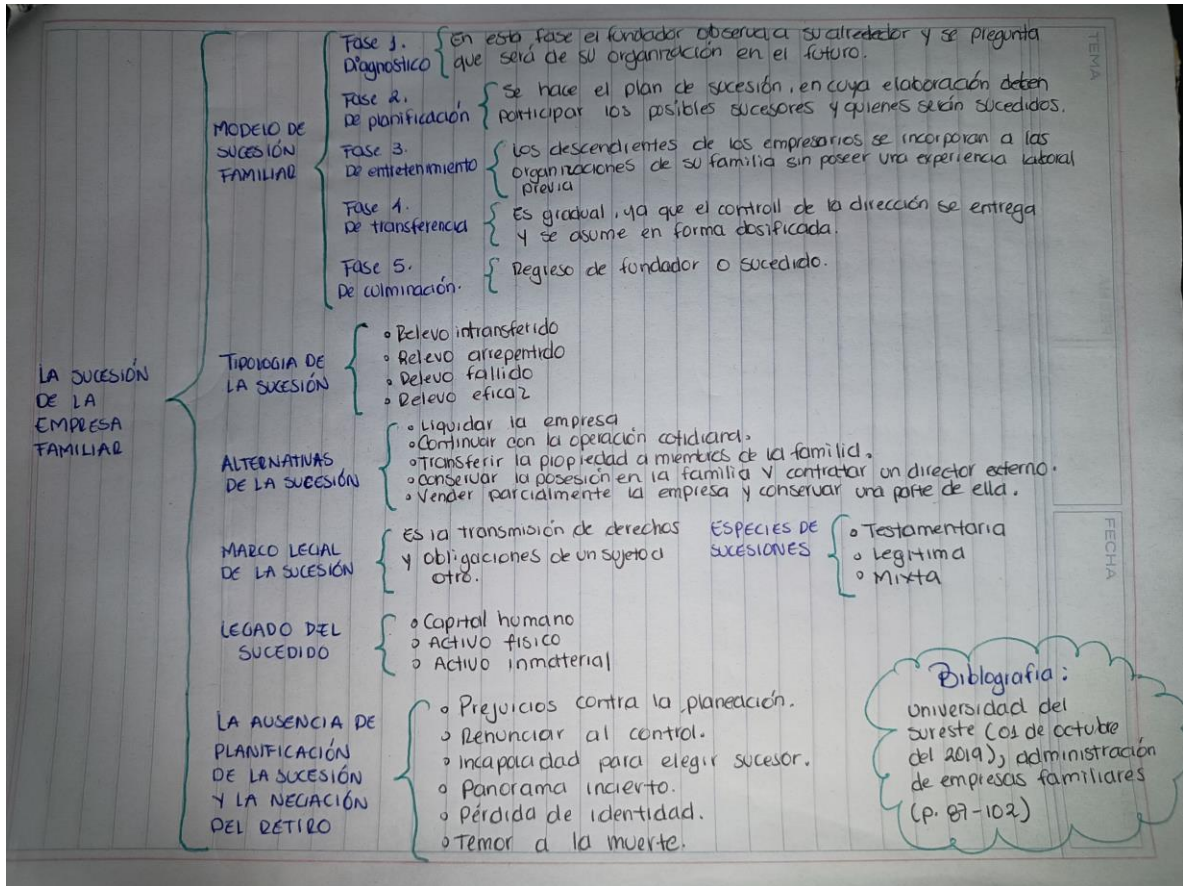 LA SUCESIÓN
DE LA
EMPRESA
FAMILIAR
MODELO DE
SUCESIÓN
FAMILIAR
Fase 1.
Diagnostico
En esta fase el fundador observa a su alrededor y se pregunta
que será de su organización en el futuro.
Fase 2.
De planificación
Se hace el plan de sucesión, en cuya elaboración deben
participar los posibles sucesores y quienes serán sucedidos.
Fase 3.
De entretenimiento
Los descendientes de los empresarios se incorporan a las
organizaciones de su familia sin poseer una experiencia laboral
previa
Fase 4.
De transferencia
Es gradual, ya que el controll de la dirección se entrega
y se asume en forma dosificada.
Fase 5.
De culminación.
Regreso de fundador o sucedido.
TIPOLOGIA DE
LA SUCESIÓN
• Relevo intransferido
• Relevo arrepentido
• Relevo fallido
• Relevo eficaz
ALTERNATIVAS
DE LA SUCESIÓN
• Liquidar la empresa
• Continuar con la operación cotidiana.
• Transferir la propiedad a miembros de la familia.
• Conservar la posesión en la familia y contratar un director externo.
• Vender parcialmente la empresa y conservar una parte de ella.
MARCO LEGAL
DE LA SUCESIÓN
Es la transmisión de derechos
y obligaciones de un sujeto a
otro.
ESPECIES DE
SUCESIONES
• Testamentaria
• Legitima
• Mixta
LEGADO DEL
SUCEDIDO
• Capital humano
• Activo fisico
• Activo inmaterial
LA AUSENCIA DE
PLANIFICACIÓN
DE LA SUCESIÓN
Y LA NEGACIÓN
DEL RETIRO
• Prejuicios contra la planeación.
• Renunciar al control.
• Incapacidad para elegir sucesor.
• Panorama incierto.
• Pérdida de identidad.
• Temor a la muerte.
Biblografia:
Universidad del
sureste (01 de octubre
del 2019), administración
de empresas familiares
(p. 87-102)
TEMA
FECHA